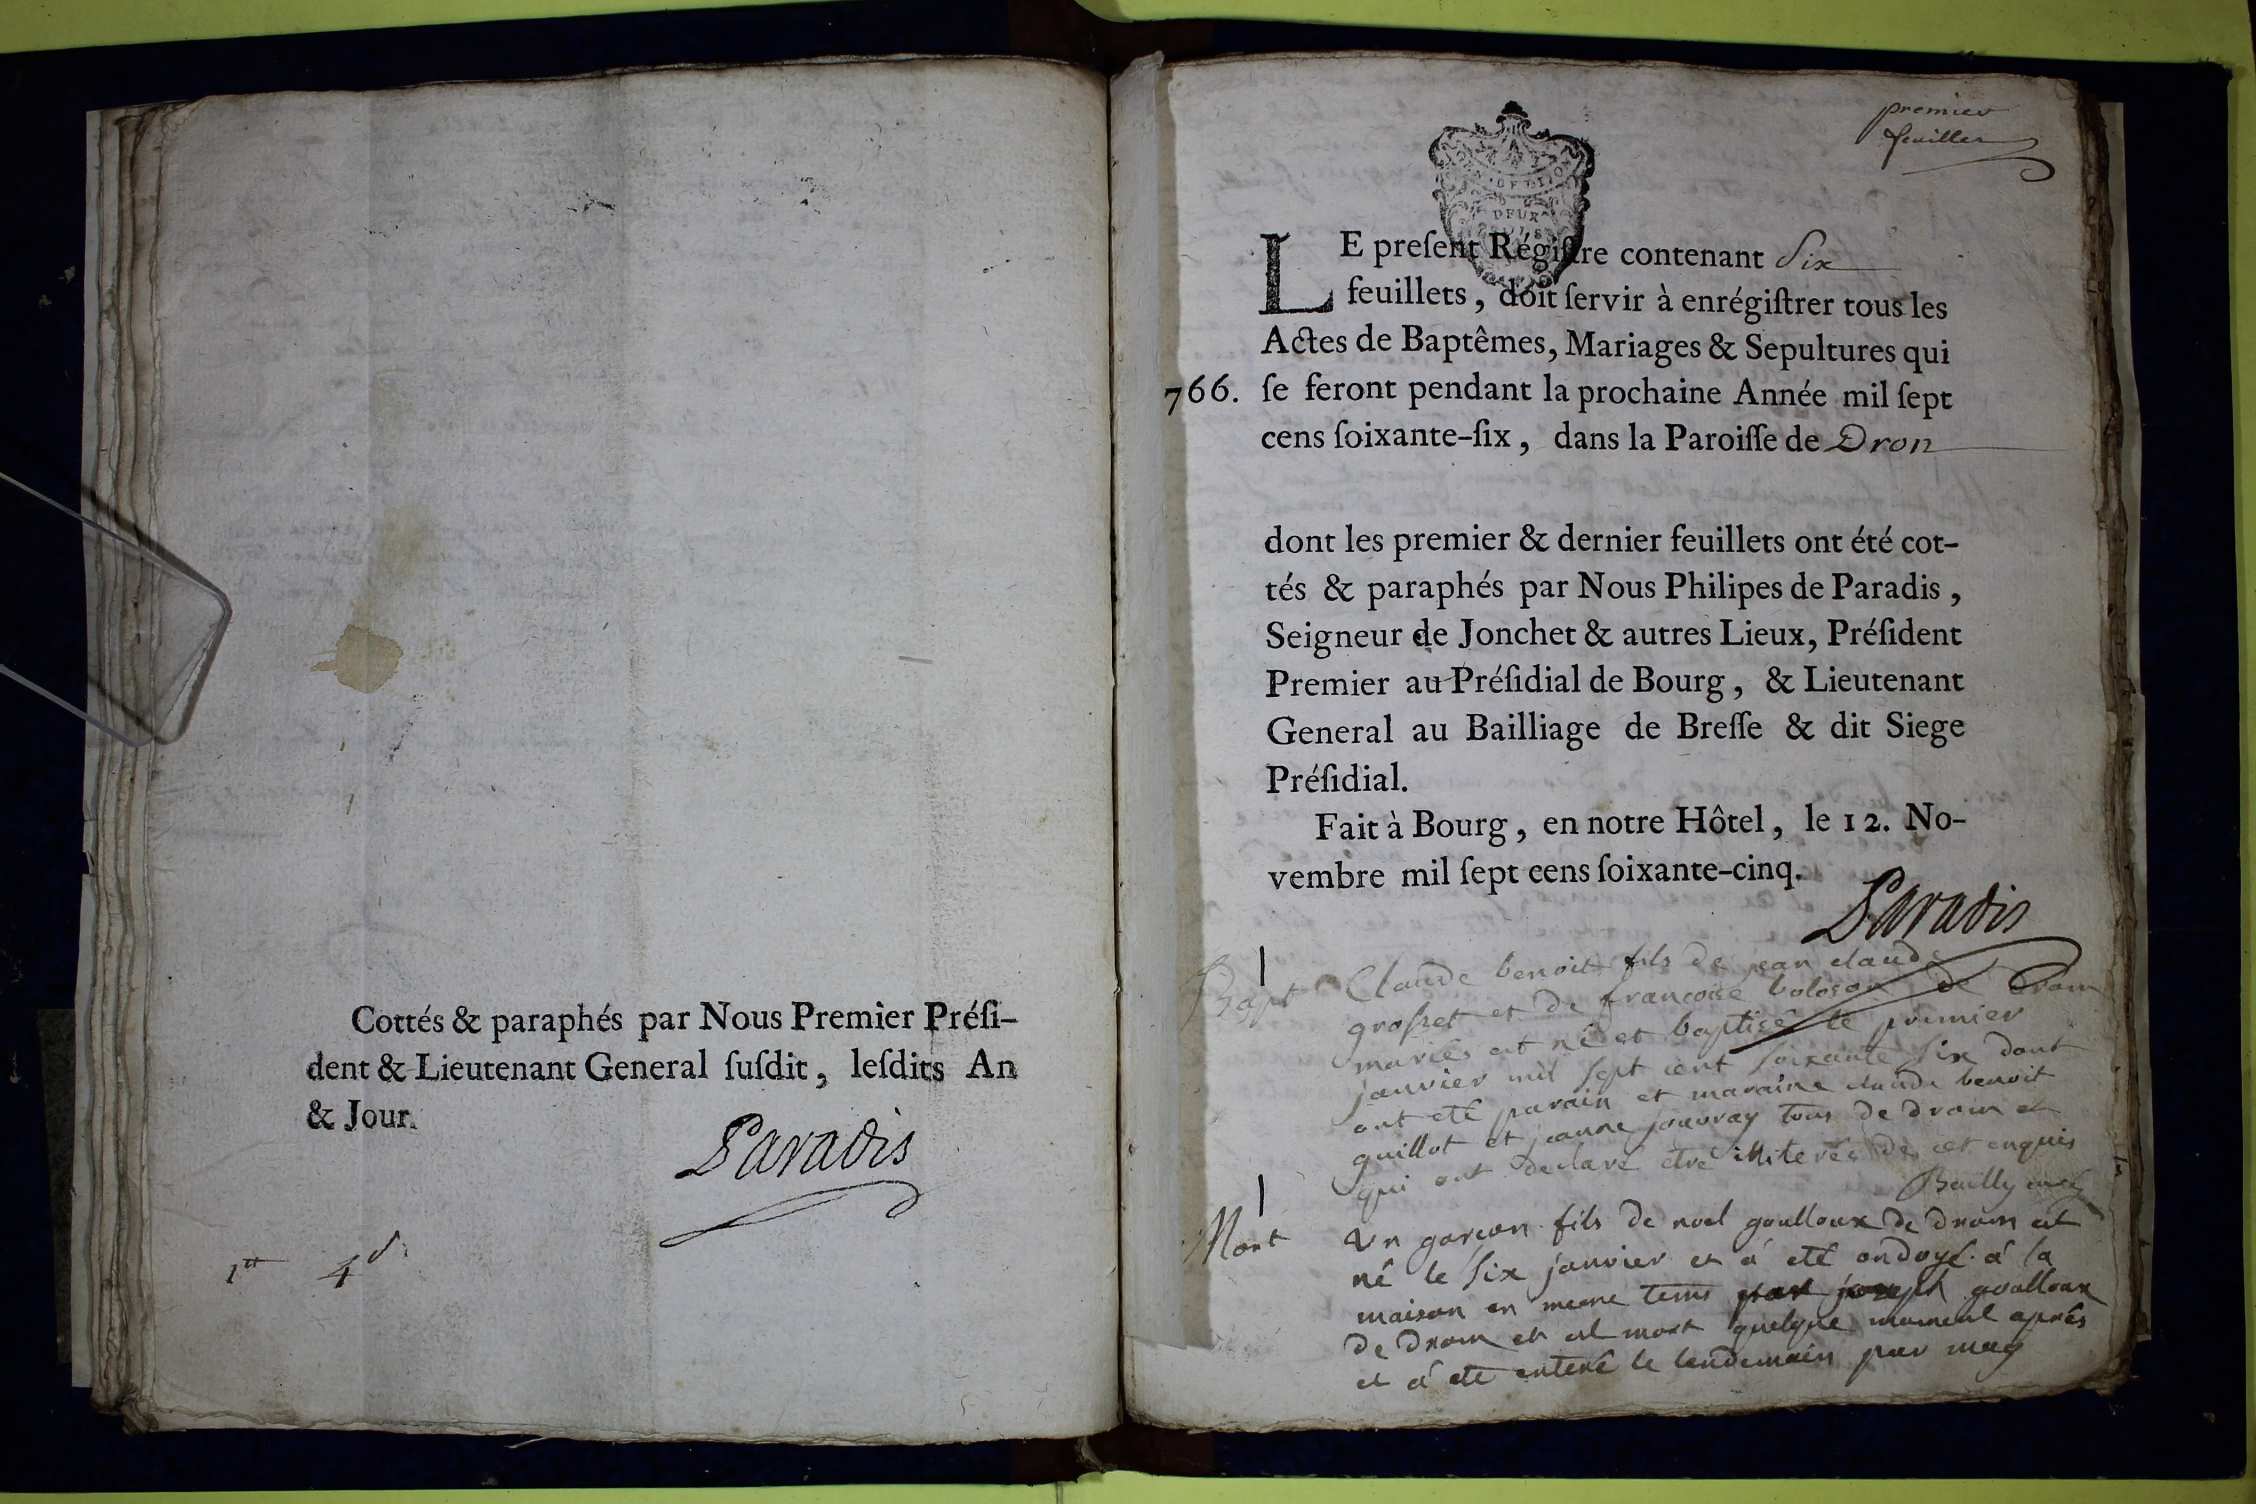 Cottés & paraphés par Nous Premier Préſi-
dent & Lieutenant General ſuſdit, leſdits An
& Jour.
Paradis
1er 4d
premier
feuillet
DEUX
LE preſent Régiſtre contenant Six
feuillets, doit ſervir à enrégiſtrer tous les
Actes de Baptêmes, Mariages & Sepultures qui
766. ſe feront pendant la prochaine Année mil ſept
cens ſoixante-ſix, dans la Paroiſſe de Dron
dont les premier & dernier feuillets ont été cot-
tés & paraphés par Nous Philipes de Paradis,
Seigneur de Jonchet & autres Lieux, Préſident
Premier au Préſidial de Bourg, & Lieutenant
General au Bailliage de Breſſe & dit Siege
Préſidial.
Fait à Bourg, en notre Hôtel, le 12. No-
vembre mil ſept cens ſoixante-cinq.
Paradis
Bapt Claude benoit fils de jean claude
grosset et de francoise boloson de Drom
mariés est né et baptisé le premier
janvier mil sept cent soixante six dont
ont eté parain et maraine claude benoit
guillot et jeanne jouvray tous de drom et
qui ont declaré etre illiterés de ce enquis
Bailly curé
Mort Un garcon fils de noel goulloux de drom est
né le six janvier et á eté ondoyé á la
maison en meme tems par joseph goulloux
de drom et est mort quelque moment aprés
et á eté enteré le lendemain par moy